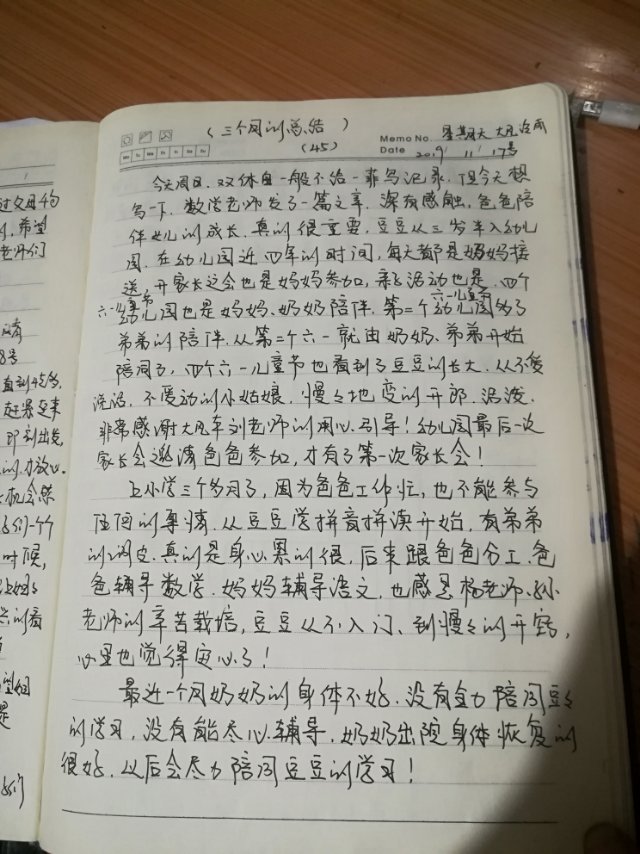 (三个月的总结)
(45)
Memo No. 星期天 大风冷雨
Date 2019 11 17号
今天周日.双休日一般不给一菲写记录.但今天想
写一下.数学老师发了一篇文章.深有感触,爸爸陪
伴女儿的成长.真的很重要,豆豆从三岁半入幼儿
园.在幼儿园近四年的时间,每天都是妈妈接
送,开家长会也是妈妈参加,亲子活动也是.四个
六一儿童节
幼儿园也是妈妈、奶奶陪伴.第二个幼儿园多了
六一儿童节
弟弟的陪伴.从第二个六一就由奶奶、弟弟开始
陪同了,四个六一儿童节也看到了豆豆的长大.从不爱
说话.不爱动的小姑娘.慢々地变的开朗.活泼.
非常感谢大风车刘老师的用心引导!幼儿园最后一次
家长会邀请爸爸参加,才有了第一次家长会!
上小学三个多月了,因为爸爸工作忙,也不能参与
任何的事情.从豆豆学拼音拼读开始.有弟弟
的调皮.真的是身心累的很,后来跟爸爸分工.爸
爸辅导数学.妈妈辅导语文,也感恩杨老师、孙
老师的辛苦栽培,豆豆从不入门、到慢々的开窍,
心里也觉得定心了!
最近一个月奶奶的身体不好.没有全力陪同豆々
的学习,没有能尽心辅导.奶奶出院身体恢复的
很好.以后会尽力陪同豆豆的学习!